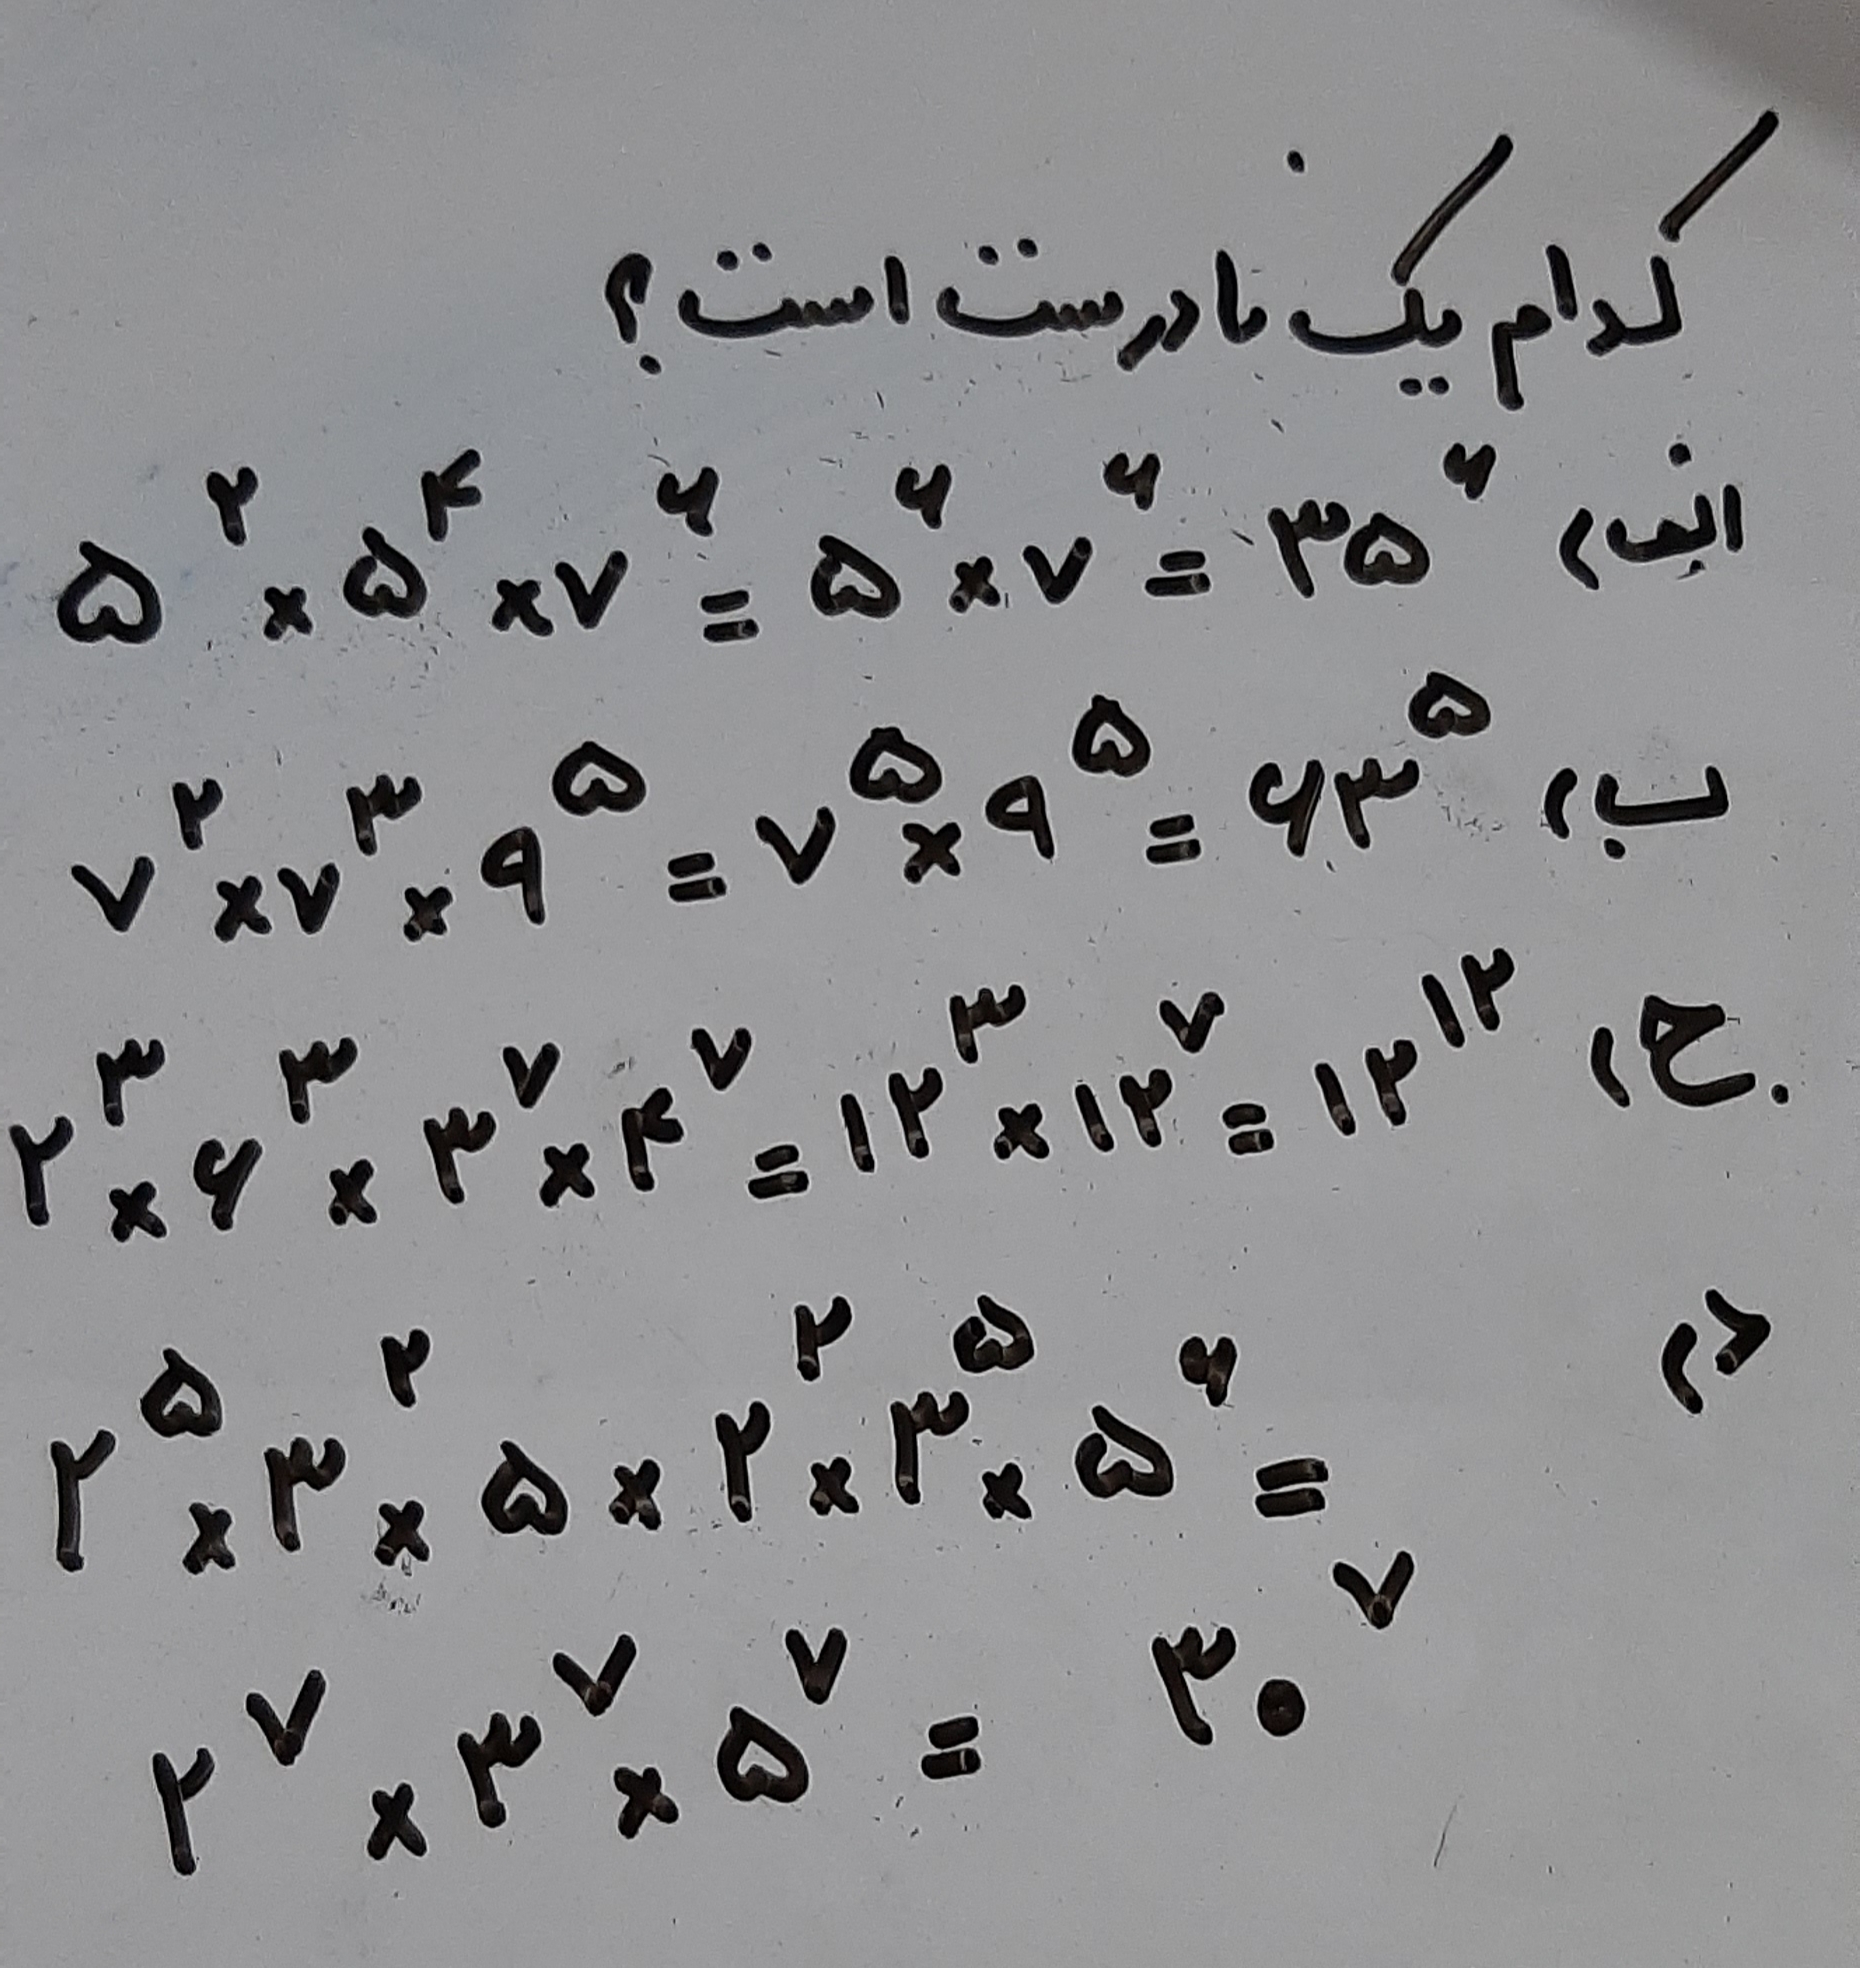 کدام یک نادرست است؟
الف) ۵^۲ × ۵^۴ × ۷^۶ = ۵^۶ × ۷^۶ = ۳۵^۶
ب) ۷^۲ × ۷^۳ × ۹^۵ = ۷^۵ × ۹^۵ = ۶۳^۵
ج) ۲^۳ × ۶^۳ × ۳^۷ × ۴^۷ = ۱۲^۳ × ۱۲^۷ = ۱۲^۱۲
د) ۲^۵ × ۳^۲ × ۵ × ۲^۲ × ۳^۵ × ۵^۶ =
۲^۷ × ۳^۷ × ۵^۷ = ۳۰^۷